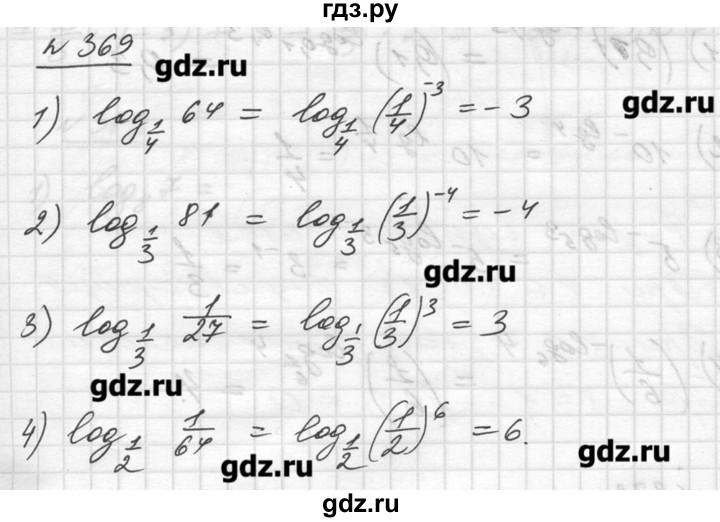 гдз.ру
№ 369
gdz.ru
1) log_{1/4} 64 = log_{1/4} (1/4)^{-3} = -3
gdz.ru
2) log_{1/3} 81 = log_{1/3} (1/3)^{-4} = -4
gdz.ru
3) log_{1/3} 1/27 = log_{1/3} (1/3)^{3} = 3
gdz.ru
4) log_{1/2} 1/64 = log_{1/2} (1/2)^{6} = 6.
gdz.ru
gdz.ru
gdz.ru